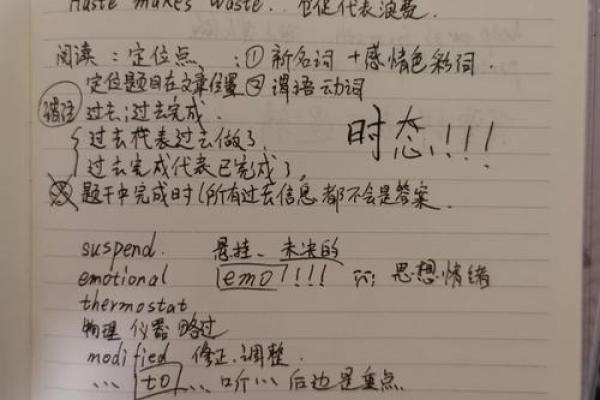 Haste makes waste. 仓促代表浪费.
阅读：定位点：① 新名词 + 感情色彩词.
定位题目在文章位置 ② 谓语动词
语法 过去；过去完成.
过去代表过去做了
时态!!!!
过去完成代表已完成了,
题干中完成时(所有过去信息都不会是答案.
suspend. 悬挂、未决的
emotional emo!!!! 思想情绪
thermostat
物理仪器 略过
modified 修正.调整.
... to ... 听... 后边是重点